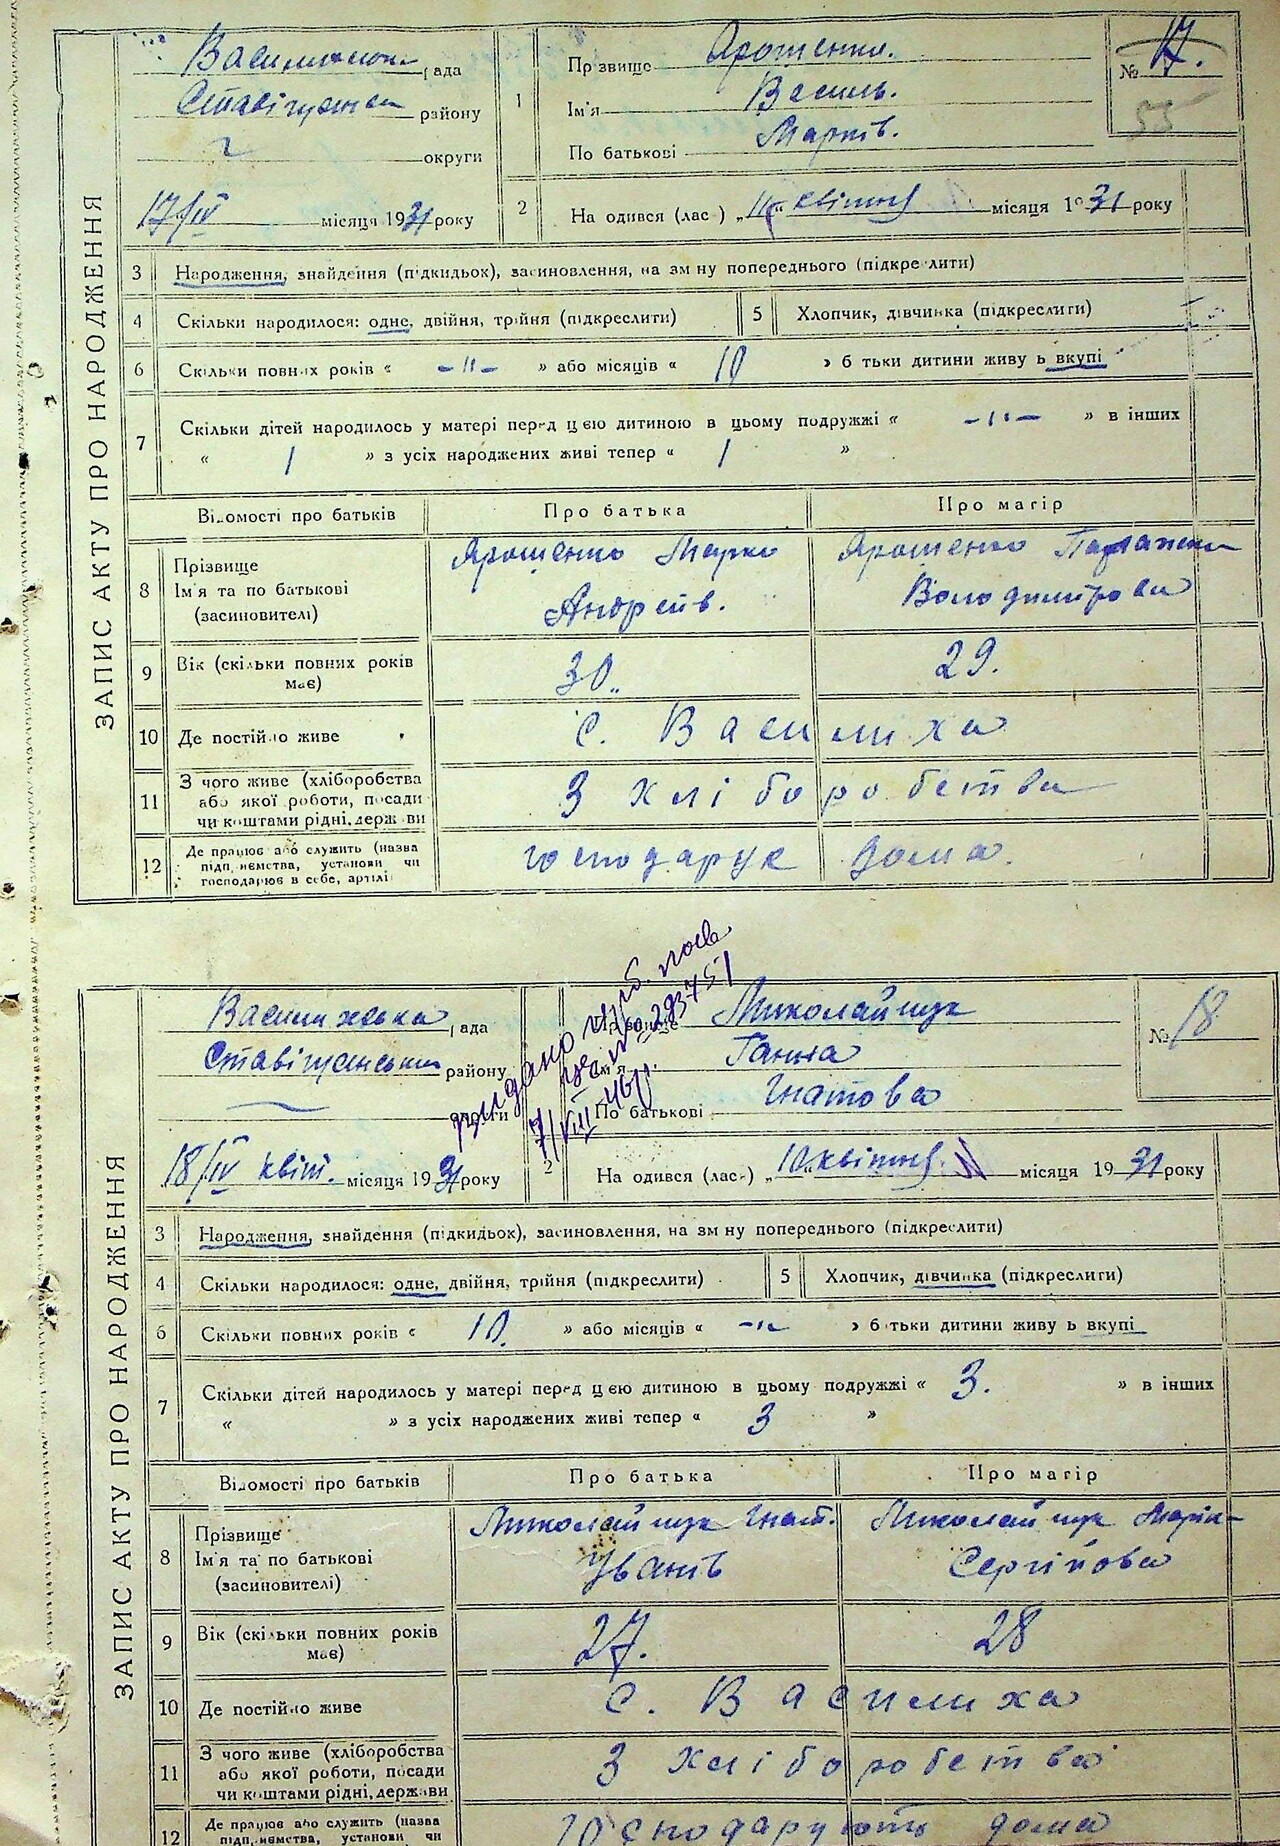 ЗАПИС АКТУ ПРО НАРОДЖЕННЯ
рада
району
округи
17/IV місяця 1931 року
1
Прізвище Ярошенко.
Ім'я Василь.
По батькові Марків.
№ 17.
55
2
На одився (лас ) „11" квітня місяця 1931 року
3 Народження, знайдення (підкидьок), засиновлення, на зм ну попереднього (підкре лити)
4 Скільки народилося: одне, двійня, трійня (підкреслити)
5 Хлопчик, дівчинка (підкреслити)
6 Скільки повних років « -"- » або місяців « 10 » б тьки дитини живу ь вкупі
7 Скільки дітей народилось у матері перед цією дитиною в цьому подружжі « -"- » в інших
« 1 » з усіх народжених живі тепер « 1 »
Відомості про батьків Про батька Про матір
8 Прізвище
Ім'я та по батькові
(засиновителі)
Ярошенко Марко
Андреїв.
Ярошенко
Володимірова
9 Вік (скільки повних років
має)
30 29.
10 Де постійно живе с. Василиха
11 З чого живе (хліборобства
або якої роботи, посади
чи коштами рідні, держ ви
З хліборобства
12 Де працює або служить (назва
підп иємства, установи чи
господарює в себе, артілі
господарує дома.
ЗАПИС АКТУ ПРО НАРОДЖЕННЯ
Василихська рада
району
округи
18/IV квіт. місяця 1931 року
видано
7/VIII 46
Прізвище Миколайчук
Ім'я Ганна
По батькові Гнатова
№ 18
2
На одився (лас ) „10" квітня місяця 1931 року
3 Народження, знайдення (підкидьок), засиновлення, на зм ну попереднього (підкреслити)
4 Скільки народилося: одне, двійня, трійня (підкреслити)
5 Хлопчик, дівчинка (підкреслити)
6 Скільки повних років « 10. » або місяців « -"- » б тьки дитини живу ь вкупі
7 Скільки дітей народилось у матері перед цією дитиною в цьому подружжі « 3. » в інших
« » з усіх народжених живі тепер « 3 »
Відомості про батьків Про батька Про матір
8 Прізвище
Ім'я та по батькові
(засиновителі)
Миколайчук Гнат.
Іванів
Миколайчук Марія
Сергійова
9 Вік (скільки повних років
має)
27. 28
10 Де постійно живе с. Василиха
11 З чого живе (хліборобства
або якої роботи, посади
чи коштами рідні, держави
З хліборобства
12 Де працює або служить (назва
підп иємства, установи чи
господарують дома